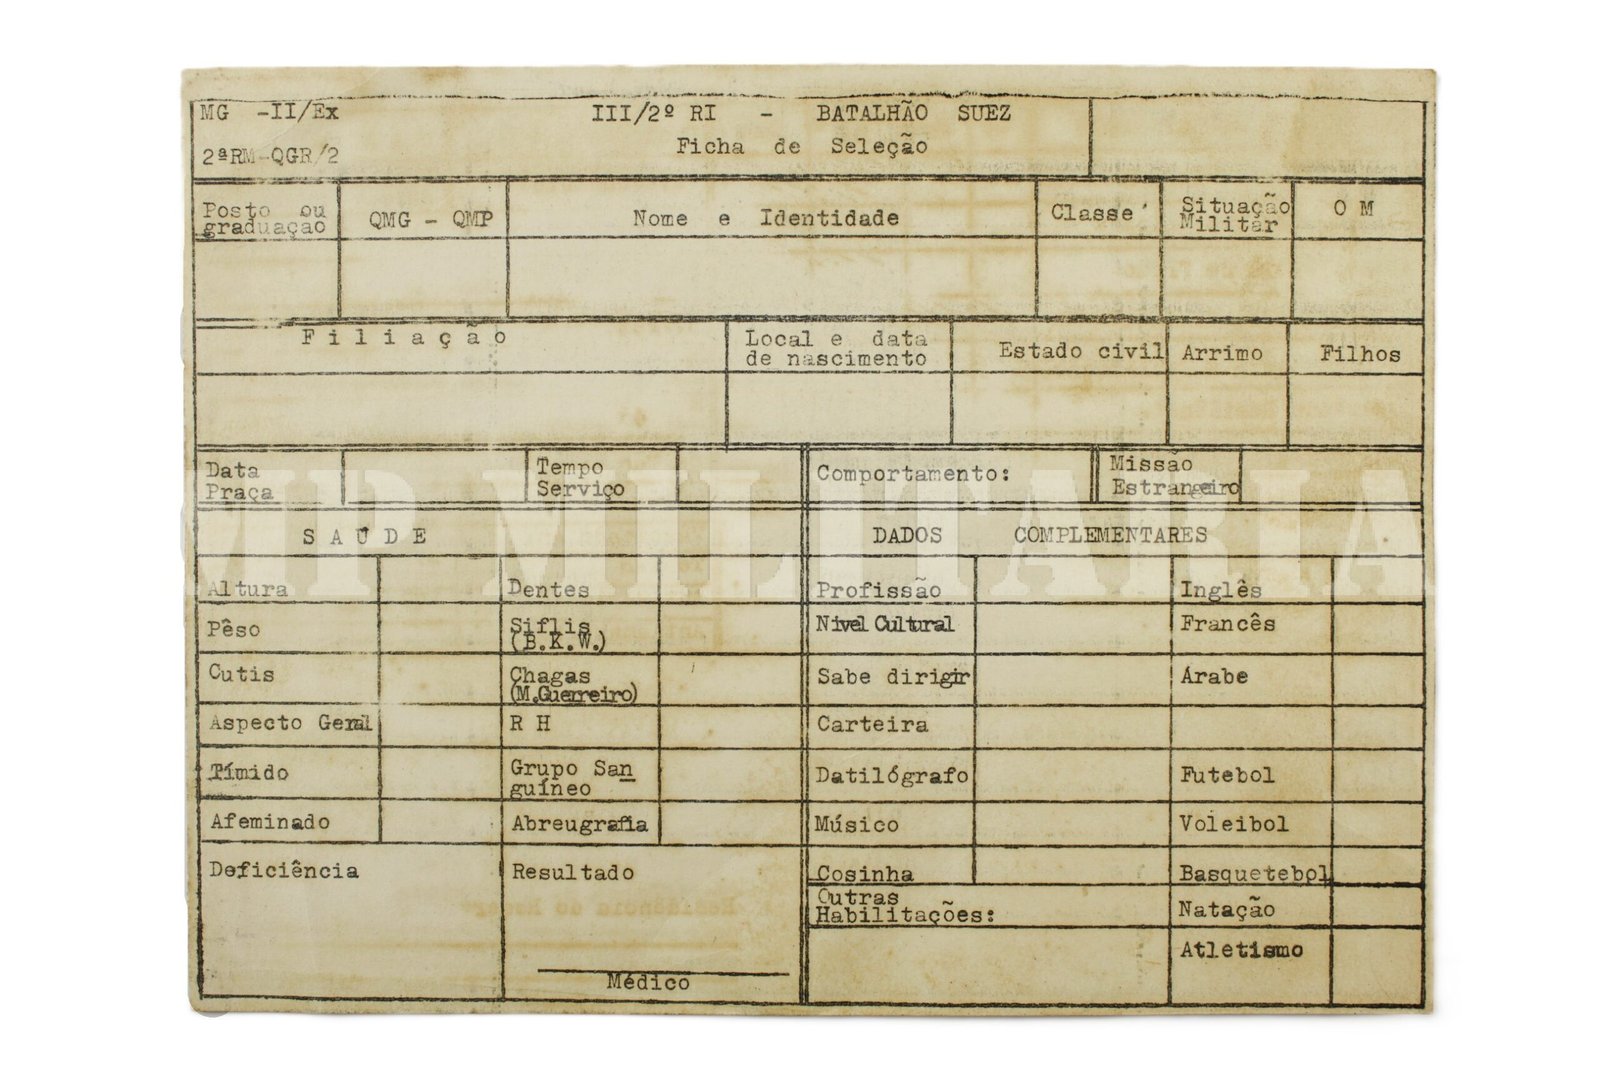 MG -II/Ex III/2º RI - BATALHÃO SUEZ
2ªRM-QGR/2 Ficha de Seleção
Posto ou graduação QMG - QMP Nome e Identidade Classe Situação Militar O M
Filiação Local e data de nascimento Estado civil Arrimo Filhos
Data Praça Tempo Serviço Comportamento: Missão Estrangeiro
SAÚDE DADOS COMPLEMENTARES
MP MILITARIA
Altura Dentes Profissão Inglês
Pêso Siflis (B.K.W.) Nivel Cultural Francês
Cutis Chagas (M.Guerreiro) Sabe dirigir Árabe
Aspecto Geral R H Carteira
Tímido Grupo San guíneo Datilógrafo Futebol
Afeminado Abreugrafia Músico Voleibol
Deficiência Resultado Cosinha Basquetebol
Outras Habilitações: Natação
Atletismo
Médico